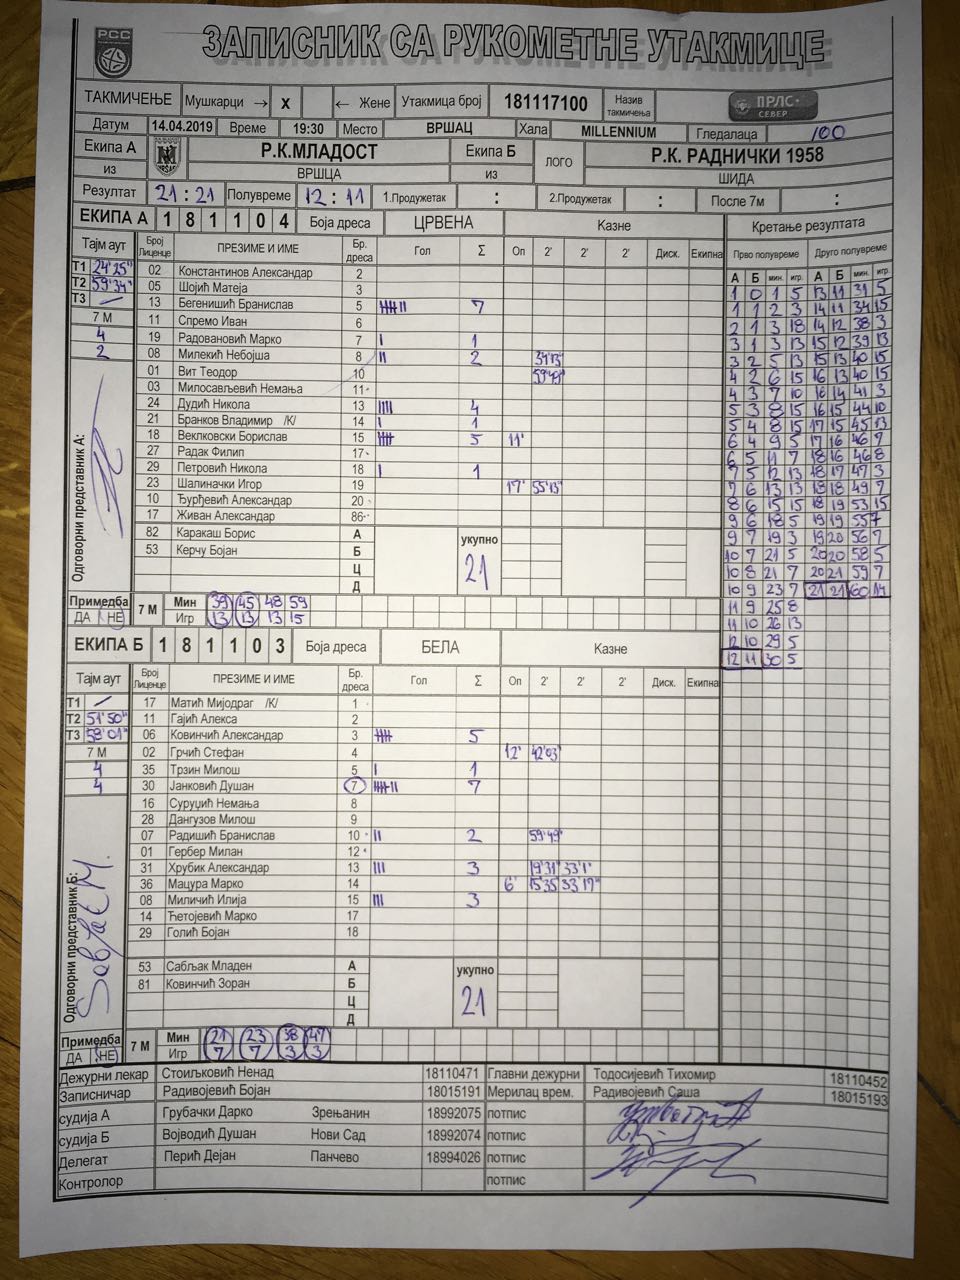 РСС
ЗАПИСНИК СА РУКОМЕТНЕ УТАКМИЦЕ
ТАКМИЧЕЊЕ Мушкарци → X ← Жене Утакмица број 181117100 Назив такмичења ПРЛС СЕВЕР
Датум 14.04.2019 Време 19:30 Место ВРШАЦ Хала MILLENNIUM Гледалаца 100
Екипа А Р.К.МЛАДОСТ Екипа Б ЛОГО Р.К. РАДНИЧКИ 1958
из ВРШЦА из ШИДА
Резултат 21 : 21 Полувреме 12 : 11 1.Продужетак : 2.Продужетак : После 7м :
ЕКИПА А 1 8 1 1 0 4 Боја дреса ЦРВЕНА Казне Кретање резултата
Тајм аут Број Лиценце ПРЕЗИМЕ И ИМЕ Бр. дреса Гол Σ Оп 2' 2' 2' Диск. Екипна Прво полувреме Друго полувреме
А Б мин. игр. А Б мин. игр.
Т1 24'25"
Т2 59'34"
Т3 –
7 М
4
2
Одговорни представник А:
02 Константинов Александар 2
05 Шојић Матеја 3
13 Бегенишић Бранислав 5 7
11 Спремо Иван 6
19 Радовановић Марко 7 I 1
08 Милекић Небојша 8 II 2
01 Вит Теодор 10
03 Милосављевић Немања 11
24 Дудић Никола 13 IIII 4
21 Бранков Владимир /К/ 14 I 1
18 Веклковски Борислав 15 5 11'
27 Радак Филип 17
29 Петровић Никола 18 I 1
23 Шалиначки Игор 19 17' 55'13"
10 Ђурђевић Александар 20
17 Живан Александар 86
82 Каракаш Борис А укупно
53 Керчу Бојан Б 21
Ц
Д
1 0 1 5 13 11 31 5
1 1 2 3 14 11 34 15
2 1 3 18 14 12 38 3
3 1 3 13 15 12 39 13
3 2 5 13 15 13 40 15
4 2 6 15 16 13 40 15
4 3 7 10 16 14 41 3
5 3 8 15 16 15 44 10
5 4 8 15 17 15 45 13
6 4 9 5 17 16 46 7
6 5 11 7 18 16 46 8
7 5 12 13 18 17 47 3
7 6 13 13 18 18 49 7
8 6 15 15 18 19 53 15
9 6 18 5 19 19 55 7
9 7 19 3 19 20 56 7
10 7 21 5 20 20 58 5
10 8 21 7 20 21 59 7
10 9 23 7 21 21 60 14
11 9 25 8
11 10 26 13
12 10 29 5
12 11 30 5
Примедба 7 М Мин 39 45 48 59
ДА НЕ Игр 13 13 13 15
ЕКИПА Б 1 8 1 1 0 3 Боја дреса БЕЛА Казне
Тајм аут Број Лиценце ПРЕЗИМЕ И ИМЕ Бр. дреса Гол Σ Оп 2' 2' 2' Диск. Екипна
Т1 –
Т2 51'50"
Т3 58'01"
7 М
4
4
Одговорни представник Б:
17 Матић Мијодраг /К/ 1
11 Гајић Алекса 2
06 Ковинчић Александар 3 5
02 Грчић Стефан 4 12' 42'03"
35 Трзин Милош 5 I 1
30 Јанковић Душан 7 7
16 Суруџић Немања 8
28 Дангузов Милош 9
07 Радишић Бранислав 10 II 2 59'49"
01 Гербер Милан 12
31 Хрубик Александар 13 III 3 19'31" 33'1"
36 Мацура Марко 14 6' 15'35 33'17"
08 Миличић Илија 15 III 3
14 Ћетојевић Марко 17
29 Голић Бојан 18
53 Сабљак Младен А укупно
81 Ковинчић Зоран Б 21
Ц
Д
Примедба 7 М Мин 21 23 38 47
ДА НЕ Игр 7 7 3 3
Дежурни лекар Стоиљковић Ненад 18110471 Главни дежурни Тодосијевић Тихомир 18110452
Записничар Радивојевић Бојан 18015191 Мерилац врем. Радивојевић Саша 18015193
судија А Грубачки Дарко Зрењанин 18992075 потпис
судија Б Војводић Душан Нови Сад 18992074 потпис
Делегат Перић Дејан Панчево 18994026 потпис
Контролор потпис